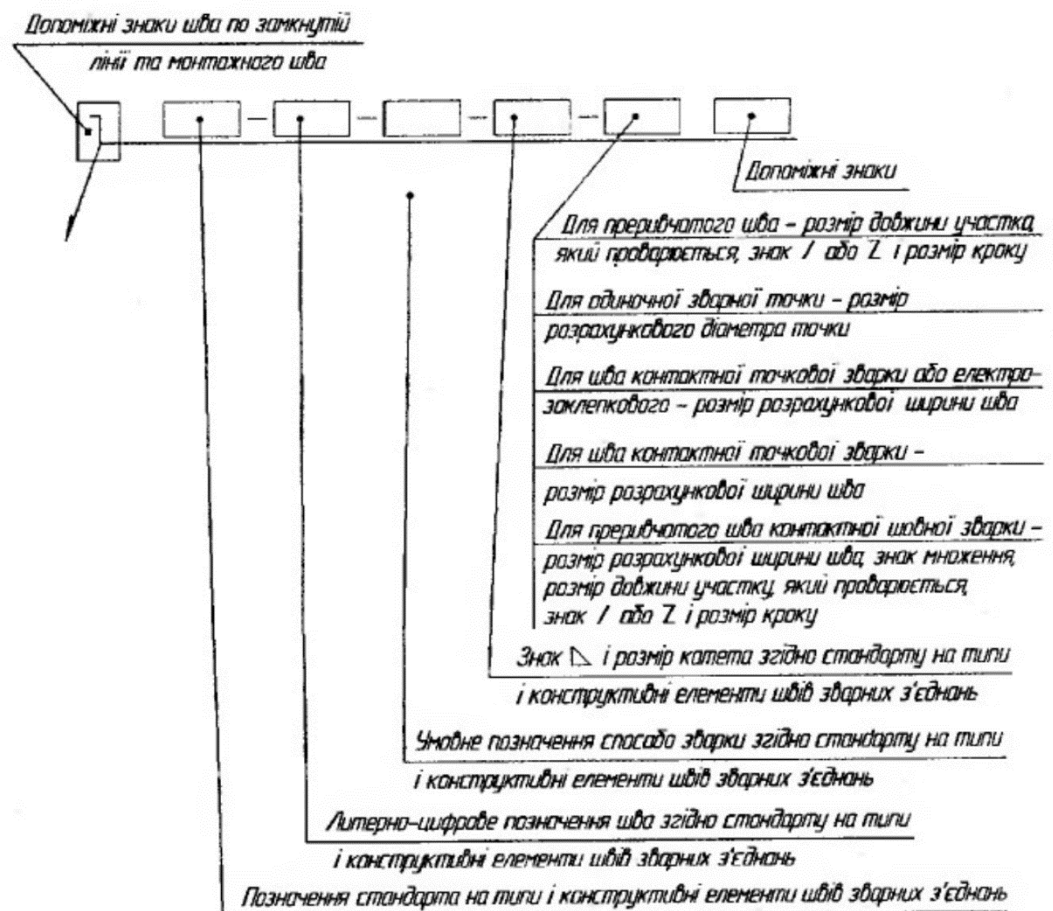 Допоміжні знаки шва по замкнутій
лінії та монтажного шва
Допоміжні знаки
Для преривчатого шва – розмір довжини участка,
який проварюється, знак / або Z і розмір кроку
Для одиночної зварної точки – розмір
розрахункового діаметра точки
Для шва контактної точкової зварки або електро-
заклепкового – розмір розрахункової ширини шва
Для шва контактної точкової зварки –
розмір розрахункової ширини шва
Для преривчатого шва контактної шовної зварки –
розмір розрахункової ширини шва, знак множення,
розмір довжини участку, який проварюється,
знак / або Z і розмір кроку
Знак ◺ і розмір катета згідно стандарту на типи
і конструктивні елементи швів зварних з'єднань
Умовне позначення способа зварки згідно стандарту на типи
і конструктивні елементи швів зварних з'єднань
Литерно-цифрове позначення шва згідно стандарту на типи
і конструктивні елементи швів зварних з'єднань
Позначення стандарта на типи і конструктивні елементи швів зварних з'єднань